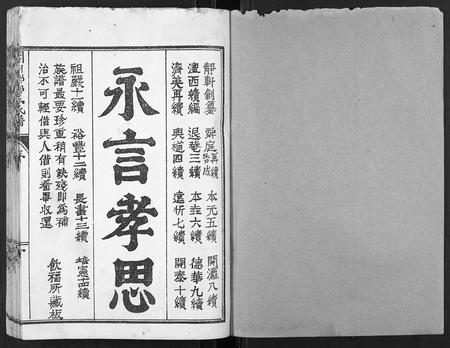 靜軒創纂 舜庭再續告成 本元五續 開瀛八續
澶西續編 退菴三續 本垚六續 德華九續
濟美再續 與道四續 遠祈七續 開泰十續
永言孝思
祖嚴十一續 裕豐十二續 長書十三續 培憲十四續
族譜最要珍重稍有缺殘即為補
治不可輕借與人借則看畢收還
飲福所藏板